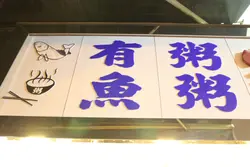 有魚
粥粥
粥